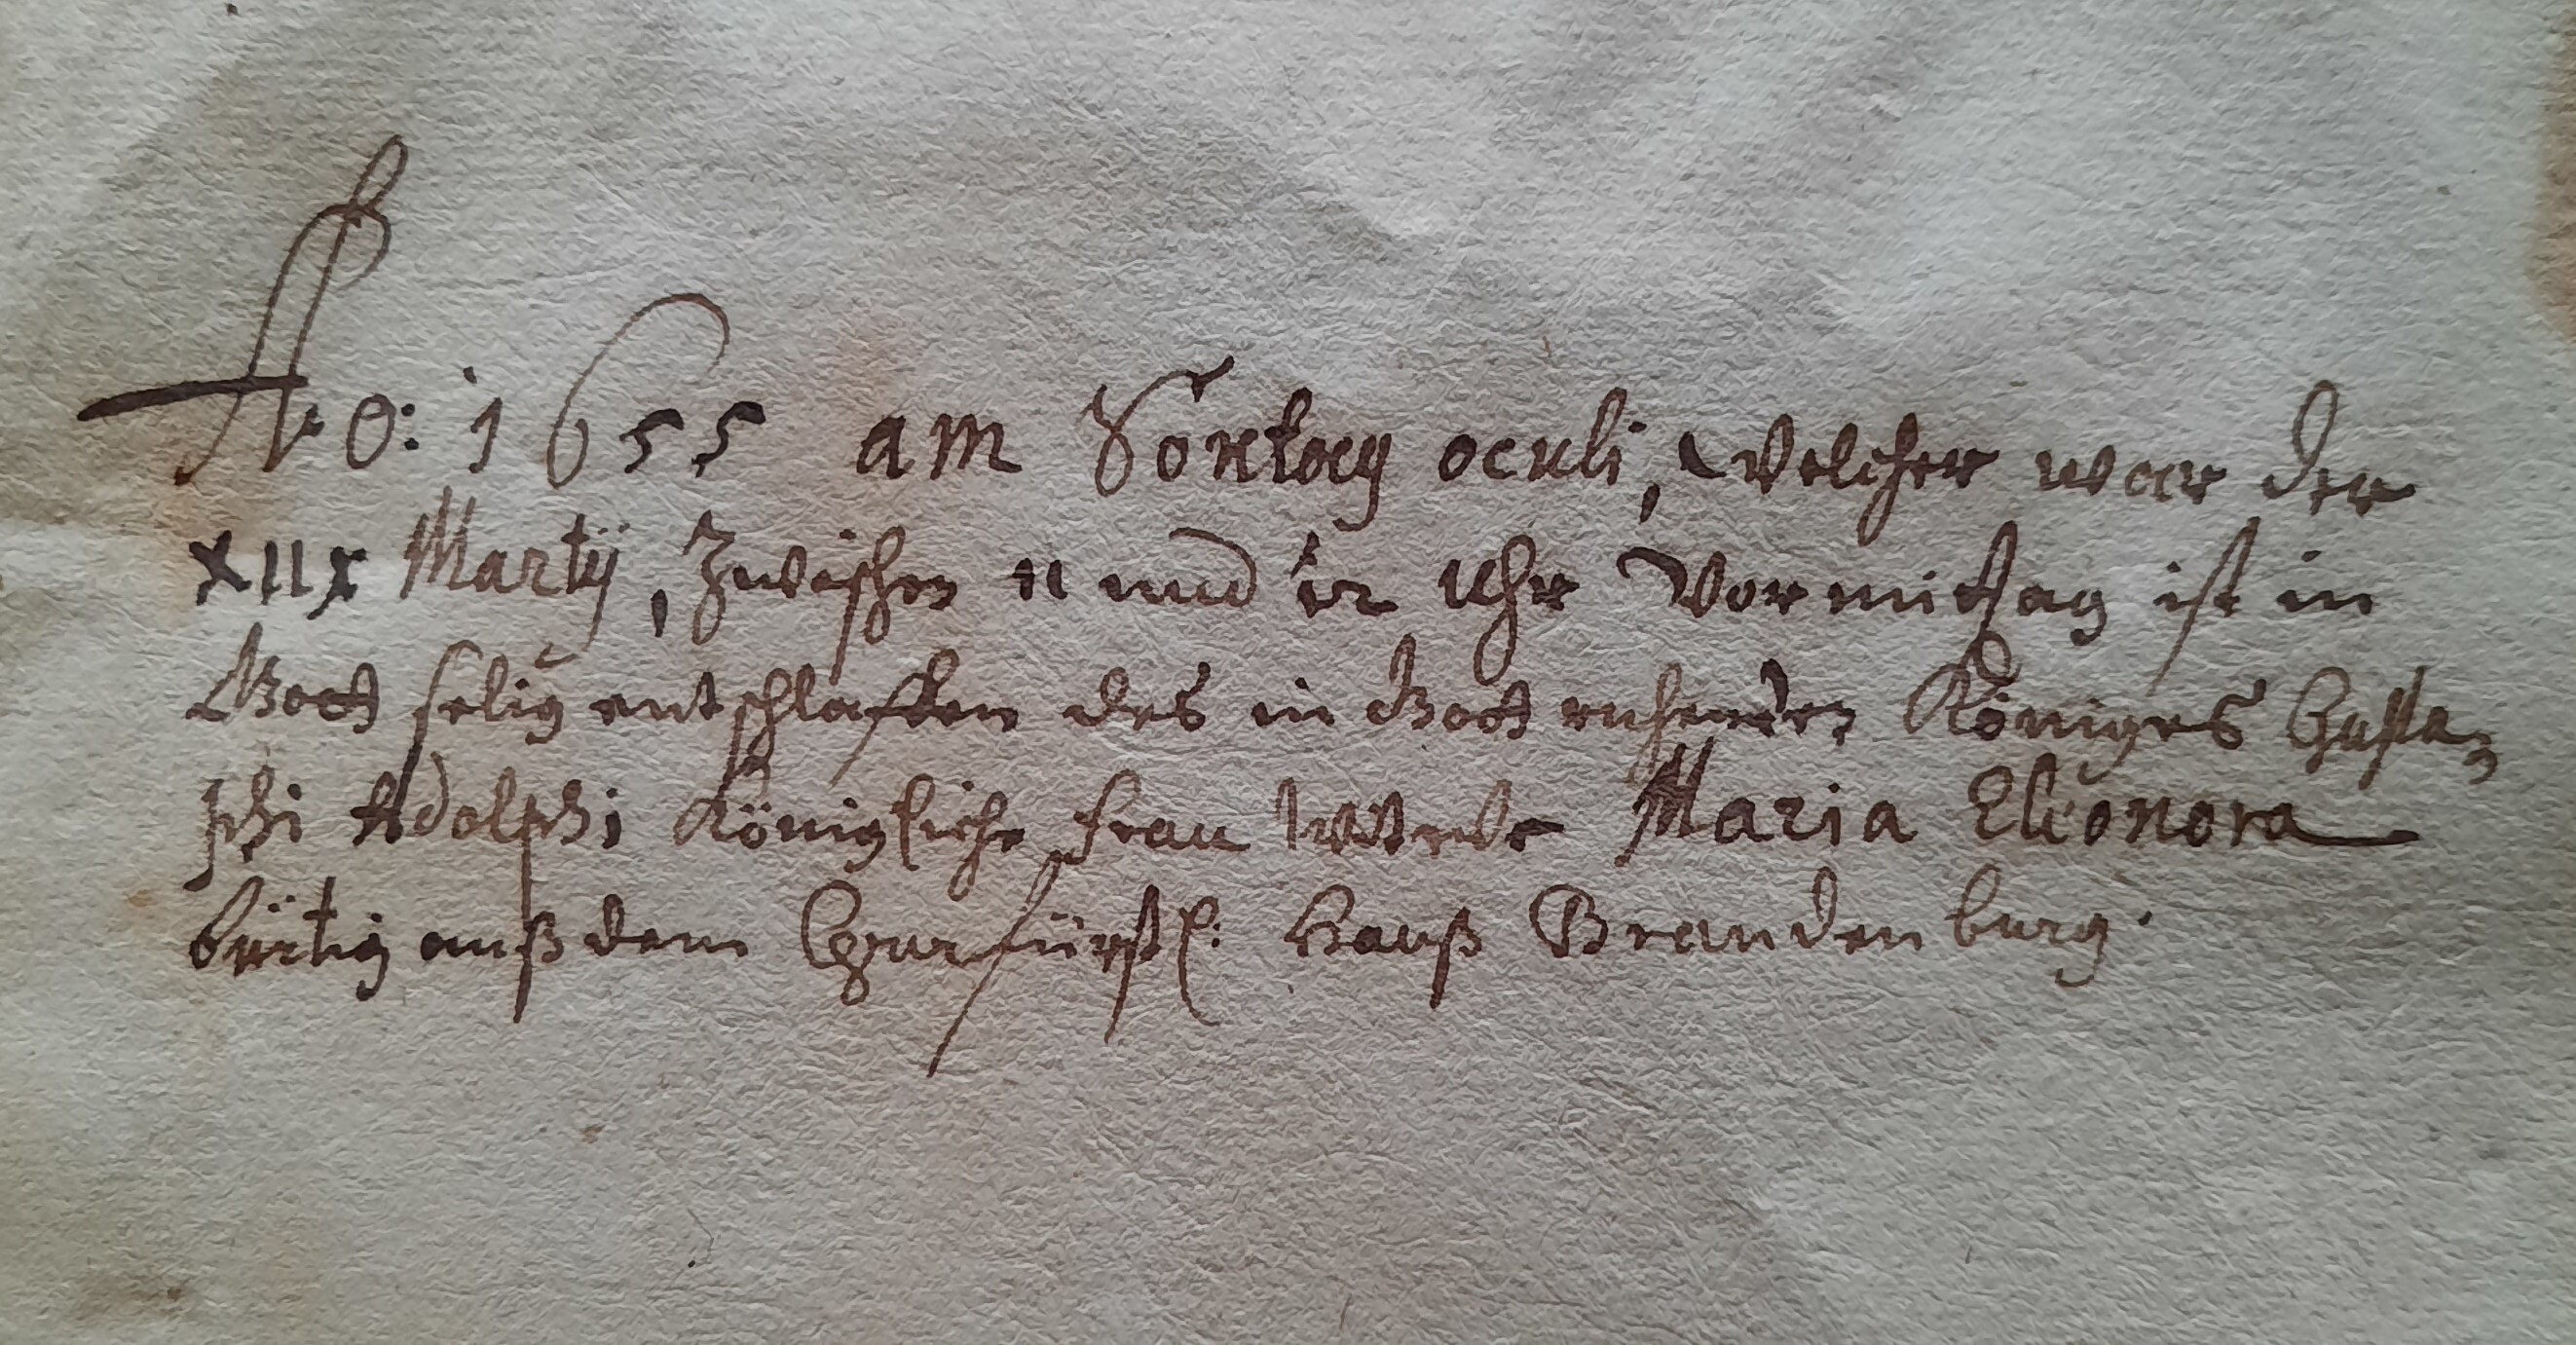 Ao: 1655 am Sontag oculi, welcher war der
XIIX Martij, zwischen 11 und 12 Uhr Vormittag ist in
Gott selig entschlaffen des in Gott ruhenden Königes Gusta-
phi Adolphi Königliche Frau Wittwe Maria Eleonora
bürtig auß dem Churfürstl: Hauß Brandenburg.